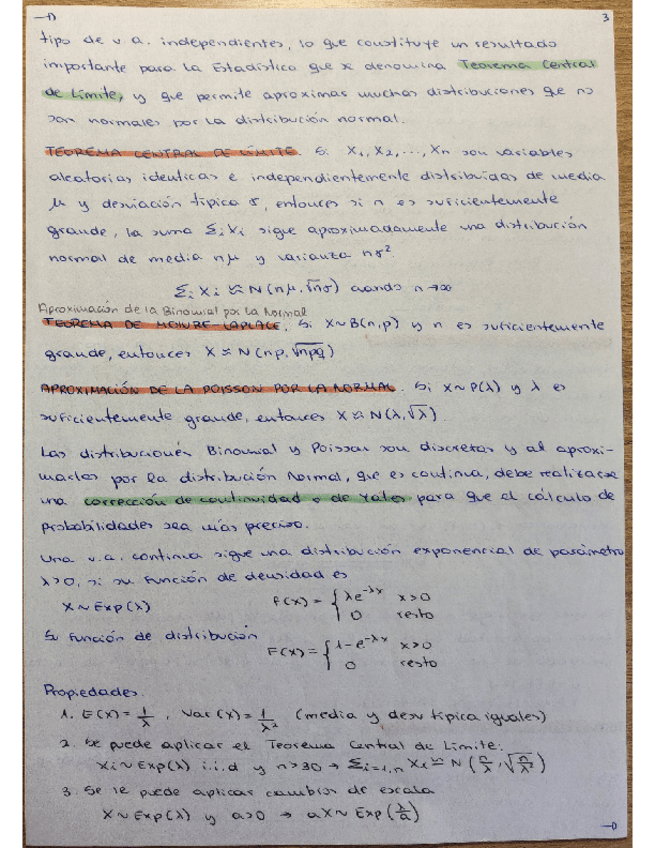 3
tipo de v a. independientes, lo que constituye un resultado
importante para la Estadística que se denomina Teorema Central
de Límite, y que permite aproximar muchas distribuciones que no
son normales por la distribución normal.
TEOREMA CENTRAL DE LÍMITE. Si X₁, X₂, ..., Xn son variables
aleatorias identicas e independientemente distribuidas de media
μ y desviación típica σ, entonces si n es suficientemente
grande, la suma Σᵢ Xᵢ sigue aproximadamente una distribución
normal de media nμ y varianza nσ²
Σᵢ Xᵢ ≈ N(nμ, √nσ) cuando n→∞
Aproximación de la Binomial por la Normal
TEOREMA DE MOIVRE-LAPLACE. Si X~B(n,p) y n es suficientemente
grande, entonces X ≈ N(np, √npq)
APROXIMACIÓN DE LA POISSON POR LA NORMAL. Si X~P(λ) y λ es
suficientemente grande, entonces X ≈ N(λ, √λ)
Las distribuciones Binomial y Poisson son discretas y al aproxi-
marlas por la distribución Normal, que es continua, debe realizarse
una corrección de continuidad o de Yates para que el cálculo de
probabilidades sea más preciso.
Una v.a. continua sigue una distribución exponencial de parámetro
λ>0, si su función de densidad es
X ~ Exp(λ) f(x) = { λe^-λx x>0
0 resto
Su función de distribución
F(x) = { 1-e^-λx x>0
0 resto
Propiedades.
1. E(x) = 1/λ, Var(x) = 1/λ² (media y desv típica iguales)
2. Se puede aplicar el Teorema Central de Límite:
Xi ~ Exp(λ) i.i.d y n>30 → Σi=1,n Xi ≈ N(n/λ, √n/λ²)
3. Se le puede aplicar cambios de escala
X ~ Exp(λ) y a>0 → aX ~ Exp(λ/a)